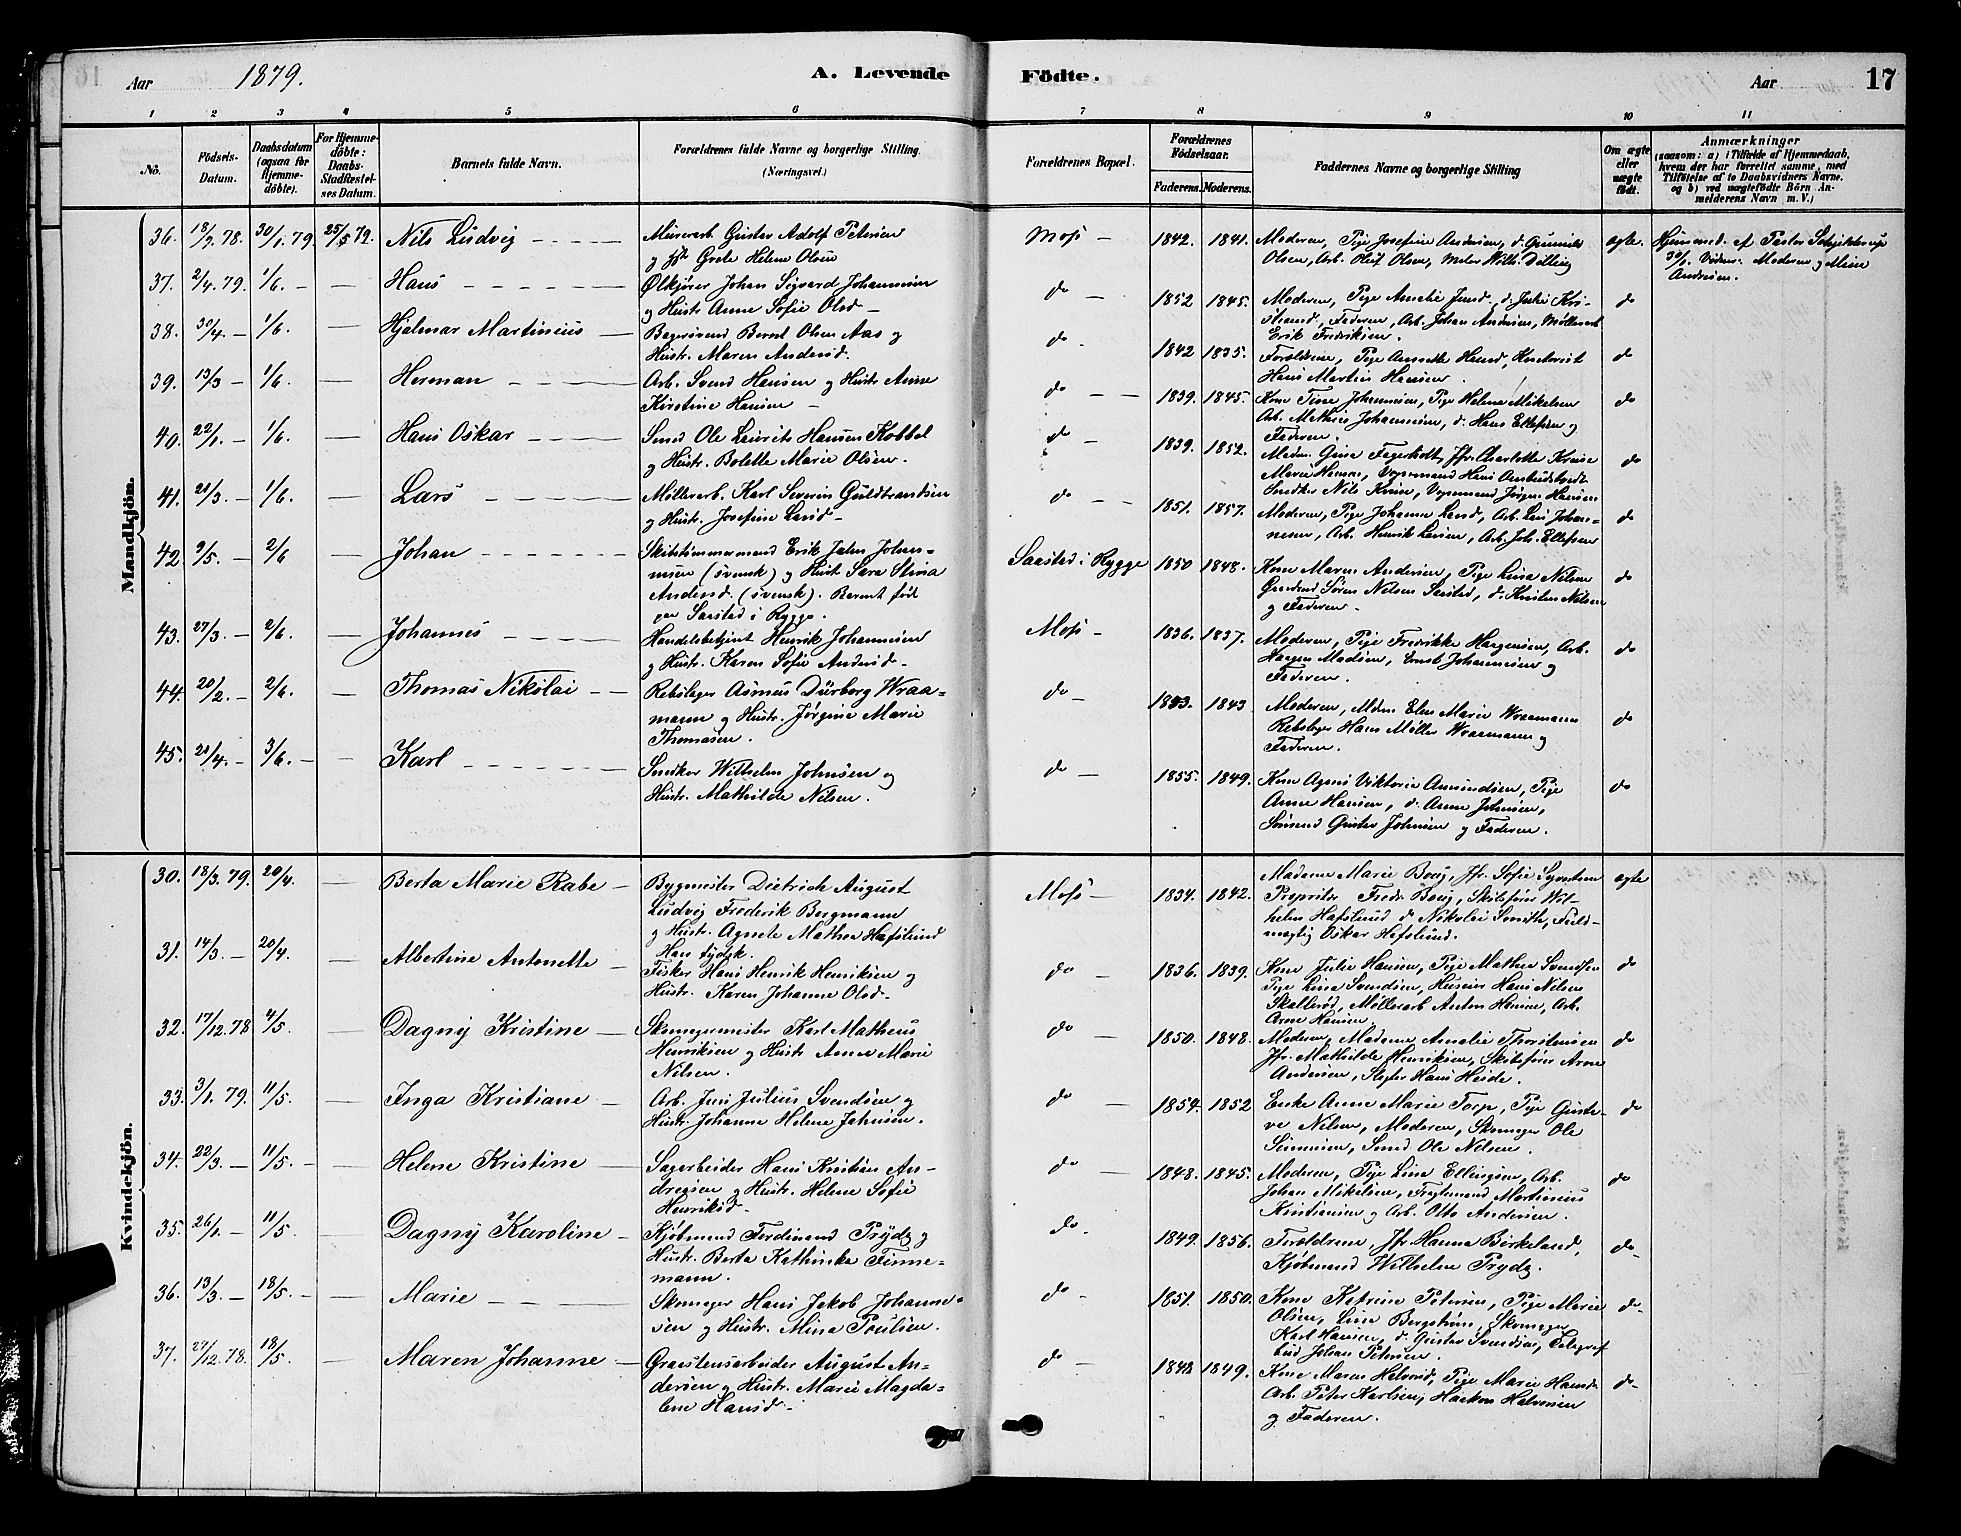 Aar 1879. A. Levende
Födte. Aar 17
1 2 3 4 5 6
7 8 9 10 11
No.
Födsels-Datum.
Daabsdatum (ogsaa for Hjemme-döbte).
For Hjemme-döbte: Daabs-Stadfæstel-ses Datum.
Barnets fulde Navn.
Forældrenes fulde Navne og borgerlige Stilling (Næringsvei.)
Forældrenes Bopæl.
Forældrenes Födselsaar.
Faderens. Moderens.
Faddernes Navne og borgerlige Stilling
Om ægte eller uægte födt.
Anmærkninger
(saasom: a) i Tilfælde af Hjemmedaab,
hvem der har forrettet samme, med
Tilföielse af to Daabsvidners Navne.
og b) ved uægtefödte Börn An-
melderens Navn m. V.)
Mandkjön.
36. 18/7 78. 30/1 79 25/5 79. Nils Ludvig
Murerarb. Gustav Adolf Petersen
og Hst. Grete Helene Olsen
Moss 1842. 1841.
Moderen, Pige Josefine Andersen, d. Gunnild
Olsen, Arb. Olaf Olsen,
ægte. Hjemmed. af Pastor Schjelderup
30/1. Vidner: Moderen og
Andersen.
37. 2/4 79. 1/6. Hans
Ølkjører Johan Sigvard Johannesen
og Hustr. Anne Sofie Olsd.
do 1852 1845.
Moderen, Pige Amalie
Faderen, Arb. Johan Andersen, Møllerarb
Erik Fredriksen.
do
38. 30/4 1/6. Hjalmar Martinius
Bernt Olsen Aas og
Hustr. Maren Andersd.
do 1842 1835.
Forældrene, Pige Annette Hansd,
Hans Martin Hansen.
do
39. 13/3 1/6. Herman
Arb. Svend Hansen og Hustr. Anne
Kirstine Hansen
do 1839. 1845.
Kone Tine Johannesen, Pige Helene Mikelsen
Arb. Mathis Johannesen, d. Hans Ellefsen og
Faderen.
do
40. 22/1. 1/6. Hans Oskar
Smed Ole Laurits Hansen Kobbel
og Hustr. Bolette Marie Olsen.
do 1839. 1852.
Madm. Gina Fagerholt, Jfr. Charlotte Kruse
Marie Hansen, Vognmand Hans
Snedker Nils Kruse, Vognmand Jørgen Hansen
do
41. 21/3. 1/6. Lars
Møllerarb. Karl Severin Guldbrandsen
og Hustr. Josefine Larsd.
do 1851. 1857.
Moderen, Pige Johanne Larsd, Arb. Lars Johan-
nesen, Arb. Henrik Larsen, Arb. Joh. Ellefsen
do
42. 9/5. 2/6 Johan
Skibstimmermand Erik John Johan-
nesen (svensk) og Hust. Sara Stina
Andersd. (svensk). Barnet født
paa Saastad i Rygge.
Saastad i Rygge 1850 1848.
Kone Maren Andersen, Pige Lina Nilsen
Gaardmd Søren Nilsen Saastad, d. Kristen Nilsen
og Faderen.
do
43. 27/3. 2/6. Johannes
Handelsbetjent Henrik Johannesen
og Hustr. Karen Sofie Andersd.
Moss 1836. 1837.
Moderen, Pige Fredrikke Haagensen, Arb.
Haagen Madsen, Ernst Johannesen og
Faderen.
do
44. 20/2. 2/6. Thomas Nikolai
Rebslager Asmus Dürborg Wraa-
mann og Hustr. Jørgine Marie
Thomasen.
do 1843
Moderen, Mdm. Elen Marie Wraamann
Rebslager Hans Møller Wraamann og
Faderen.
do
45. 21/4. 3/6. Karl
Snedker Wilhelm Johnsen og
Hustr. Mathilde Nilsen.
do 1855. 1849.
Kone Agnes Viktoria Amundsen, Pige
Anne Hansen, d. Anne Johnsen,
Sømand Gustav Johnsen og Faderen.
do
Kvindekjön.
30. 18/3 79. 20/4. Berta Marie Rabe
Bygmester Dietrich August
Ludvig Frederik Bergmann
og Hustr. Agnete Mathea Hafslund
Han tydsk.
Moss 1834. 1842.
Madame Marie Boug, Jfr. Sofie Syvertsen
Propritær Fredr. Boug, Skibsfører Wil-
helm Hafslund d. Nikolai Smith, Fuld-
mægtig Oskar Hafslund.
ægte
31. 14/3. 20/4. Albertine Antonette
Fisker Hans Henrik Henriksen og
Hustr. Karen Johanne Olsd.
do 1836. 1839.
Kone Julie Hansen, Pige Mathea Svendsen
Pige Lina Svendsen, Husmd Hans Nilsen
Skallerød, Møllerarb Anton Hansen, Arb.
Arne Hansen.
do
32. 17/12. 78 4/5. Dagny Kristine
Skomagermester Karl Matheus
Henriksen og Hustr Anne Marie
Nilsen.
do 1850. 1848.
Moderen, Madame Amalie Thorstensen
Jfr. Mathilde Henriksen, Skibsfører Arne
Andersen, Slagter Hans Heide.
do
33. 3/1. 79. 11/5. Inga Kristiane
Arb. Jens Julius Svendsen og
Hustr. Johanne Helene Jahnsen.
do 1854. 1852
Enke Anne Marie Torp, Pige Gusta-
va Nilsen, Moderen, Skomager Ole
Simensen, Smed Ole Nilsen.
do
34. 22/3. 11/5. Helene Kristine
Sagarbeider Hans Kristian An-
dresen og Hustr. Helene Sofie
Henriksd.
do 1848. 1845.
Moderen, Pige Lina Ellingsen, Arb.
Johan Mikelsen, Fragtmand Martinius
Kristiansen og Arb. Otto Andersen.
do
35. 26/1. 11/5. Dagny Karoline
Kjøbmand Ferdinand Prydz og
Hustr. Berta Kathinka Finne-
mann.
do 1849. 1856.
Forældrene, Jfr Hanna Birkeland,
Kjøbmand Wilhelm Prydz.
do
36. 13/3. 18/5. Marie
Skomager Hans Jakob Johanne-
sen og Hustr. Mina Poulsen.
do 1851. 1850.
Kone Katrine Petersen, Pige Marie
Olsen, Lina Bergstrøm, Skomager
Karl Hansen, d. Gustav Svendsen, Telegraf
bud Johan Petersen.
do
37. 27/12. 78. 18/5. Maren Johanne
Graastensarbeider August An-
dersen og Hustr. Marie Magda-
lene Hansd.
do 1848 1849.
Kone Maren Halvorsd, Pige Marie Hansd.
Arb. Peter Karlsen, Haakon Halvorsen
og Faderen.
do